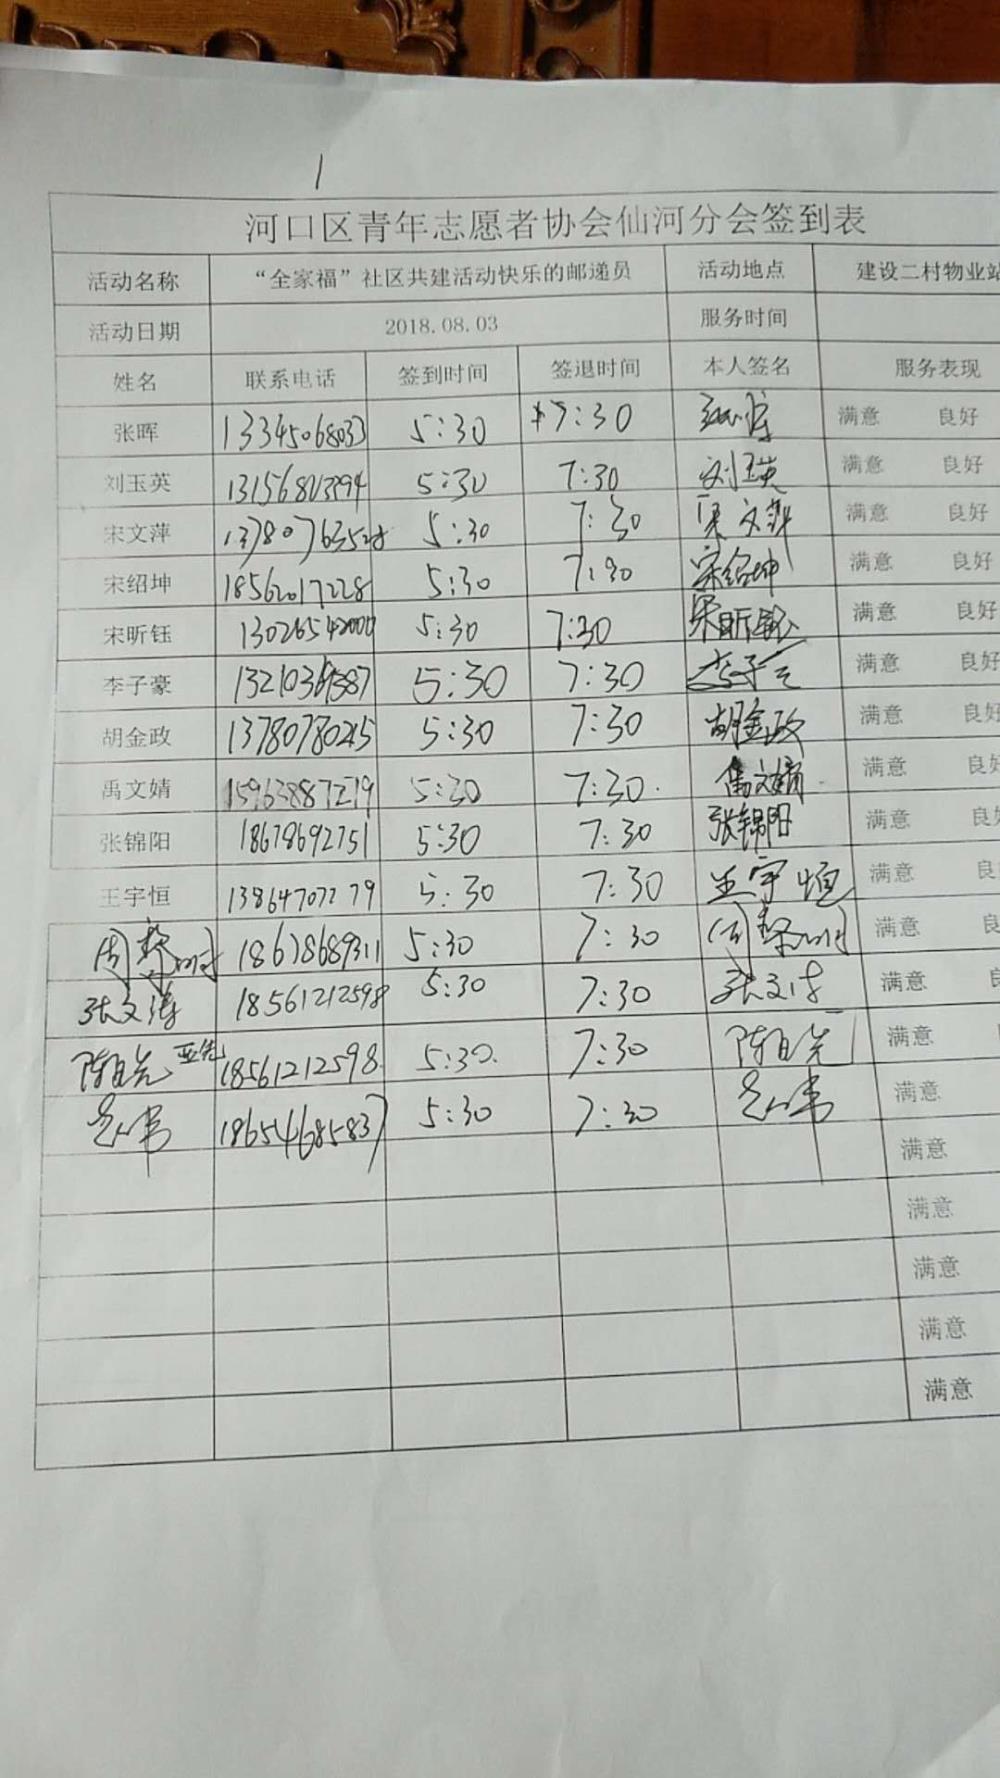 1
河口区青年志愿者协会仙河分会签到表
活动名称 “全家福”社区共建活动快乐的邮递员 活动地点 建设二村物业站
活动日期 2018.08.03 服务时间
姓名 联系电话 签到时间 签退时间 本人签名 服务表现
张晖 13345068033 5:30 7:30 满意 良好
刘玉英 5:30 7:30 刘玉英 满意 良好
宋文萍 5:30 7:30 宋文萍 满意 良好
宋绍坤 18562017228 5:30 7:30 宋绍坤 满意 良好
宋昕钰 5:30 7:30 宋昕钰 满意 良好
李子豪 5:30 7:30 满意 良好
胡金政 5:30 7:30 胡金政 满意 良好
禹文婧 15963887219 5:30 7:30 禹文婧 满意 良好
张锦阳 18678692751 5:30 7:30 张锦阳 满意 良好
王宇恒 13864707279 5:30 7:30 王宇恒 满意 良
周黎明 18678689311 5:30 7:30 周黎明 满意 良
张文涛 18561212598 5:30 7:30 张文涛 满意
18561212598 5:30 7:30 满意
18654685837 5:30 7:30 满意
满意
满意
满意
满意
满意